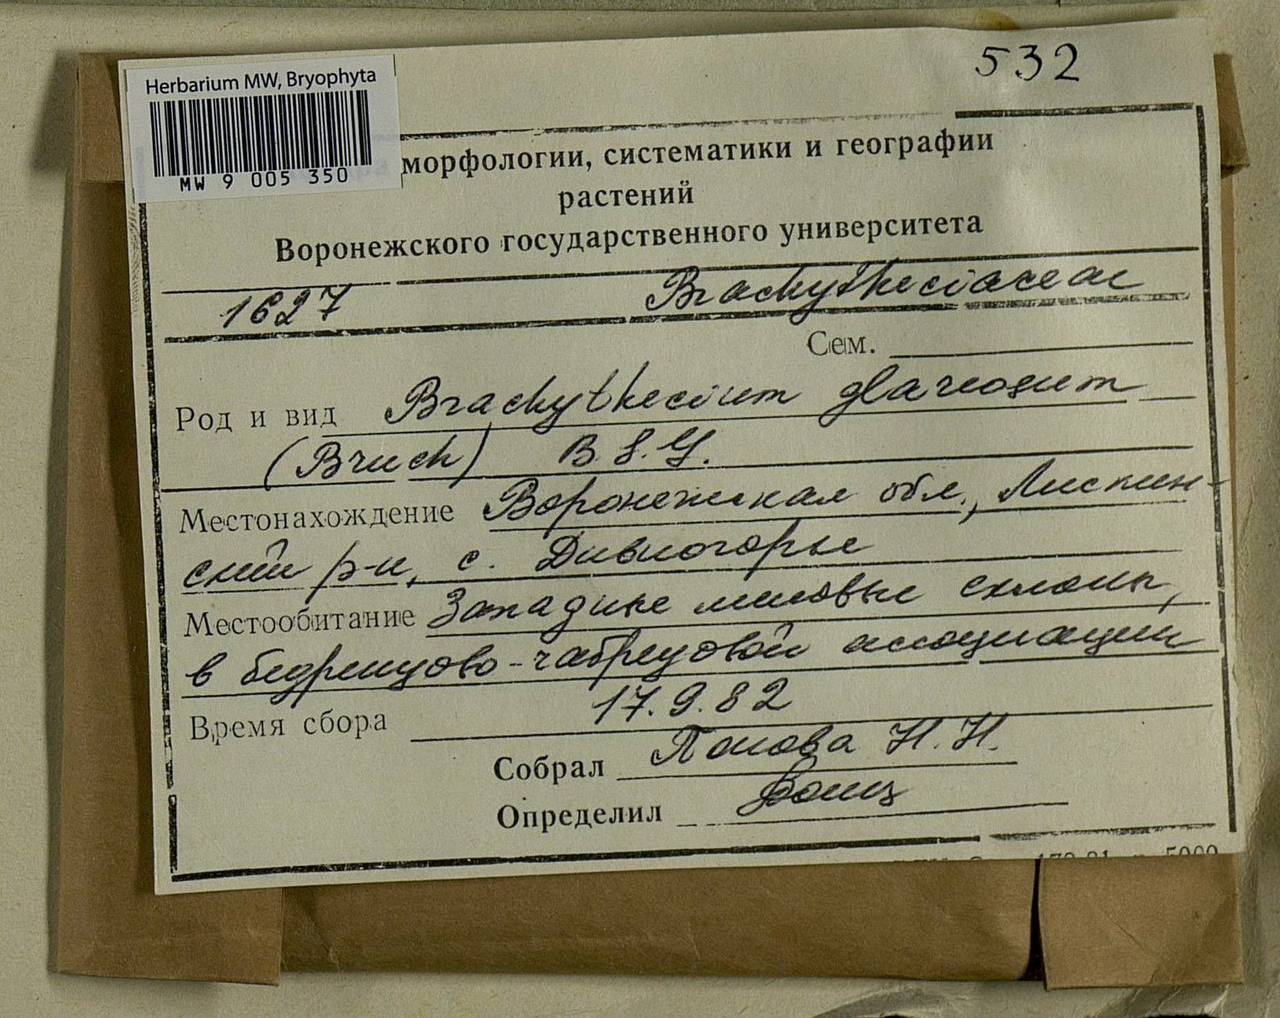 532
Herbarium MW, Bryophyta
MW 9 005 350
морфологии, систематики и географии
растений
Воронежского государственного университета
1627 Brachytheciaceae
Сем.
Род и вид Brachythecium glareosum
(Bruch) B.S.G.
Местонахождение Воронежская обл., Лискин-
ский р-н, с. Дивногорье
Местообитание Западные меловые склоны,
в бедренцово-чабрецовой ассоциации
Время сбора 17.9.82
Собрал Попова Н.Н.
Определил